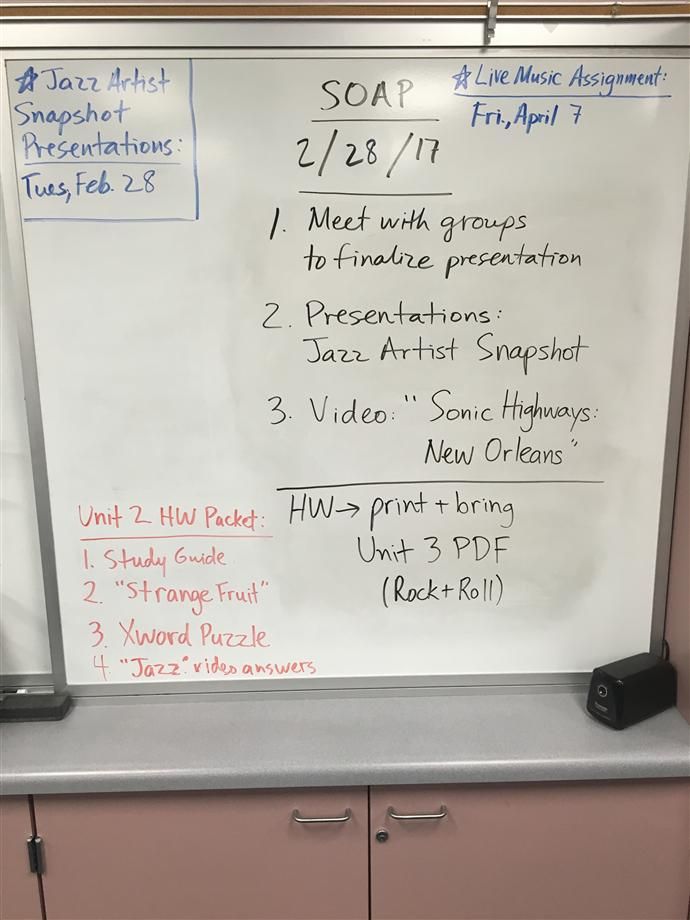 ☆ Jazz Artist
Snapshot
Presentations:
Tues, Feb. 28
SOAP
2/28/17
☆ Live Music Assignment:
Fri., April 7
1. Meet with groups
to finalize presentation
2. Presentations:
Jazz Artist Snapshot
3. Video: "Sonic Highways:
New Orleans"
HW → print + bring
Unit 3 PDF
(Rock + Roll)
Unit 2 HW Packet:
1. Study Guide
2. "Strange Fruit"
3. Xword Puzzle
4. "Jazz" video answers